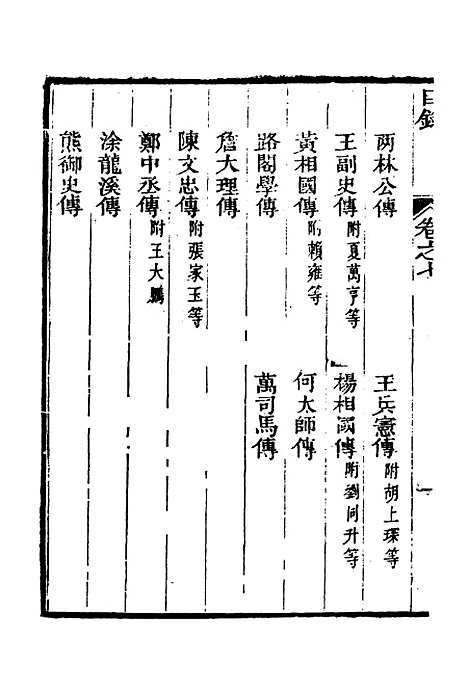 目錄 卷之七 一
两林公傳 王兵憲傳附胡上琛等
王副史傳附夏萬亨等 楊相國傳附劉同升等
黃相國傳附賴雍等 何太師傳
路閣學傳 萬司馬傳
詹大理傳
陳文忠傳附張家玉等
鄭中丞傳附王大鵬
涂龍溪傳
熊御史傳